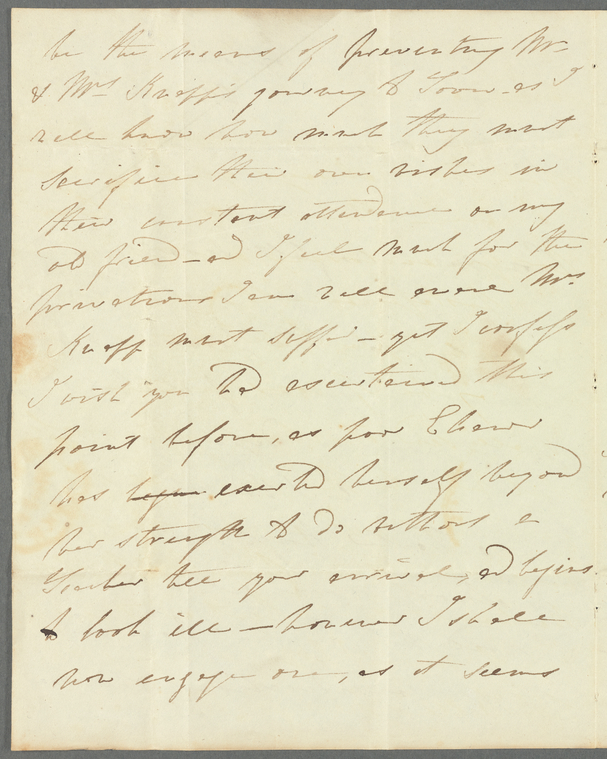 be the means of preventing Mr
& Mrs Knapp's journey to Town - as I
well know how much they must
sacrifice their own wishes in
their constant attendance on my
old friend - and I feel much for the
privations I am well aware Mrs
Knapp must suffer - yet I confess
I wish you had ascertained this
point before, as poor Eleanor
has begun exerted herself beyond
her strength to do without a
Teacher till your arrival, and begins
to look ill - however I shall
now engage one, as it seems